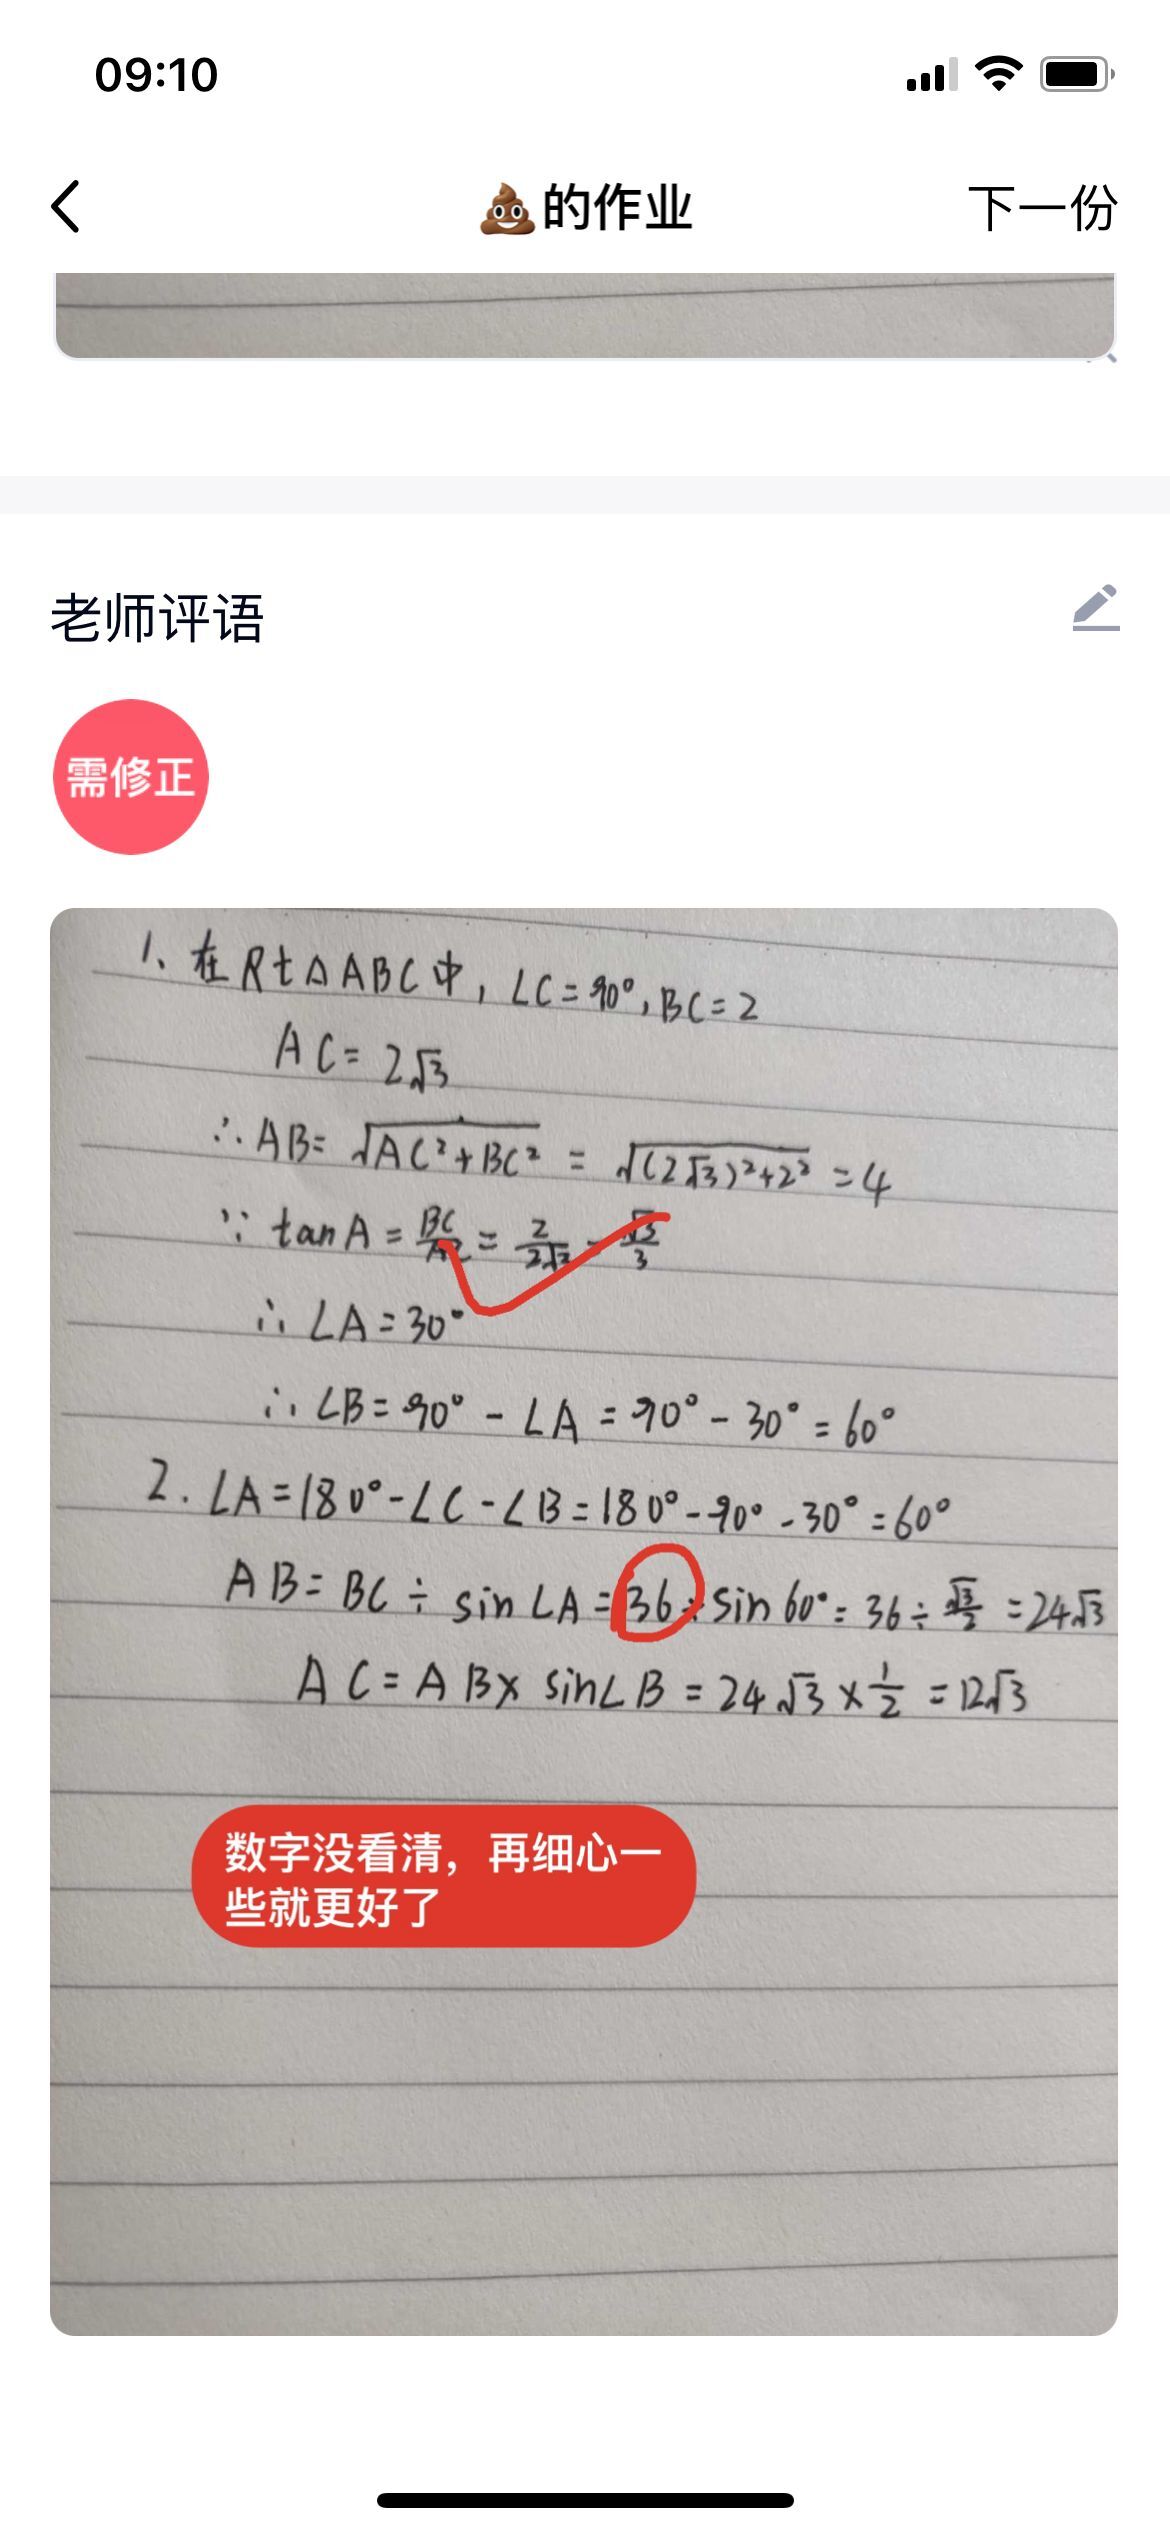 09:10
💩的作业
下一份
老师评语
需修正
1、在Rt△ABC中,∠C=90°,BC=2
AC=2√3
∴AB=√AC²+BC² = √(2√3)²+2² =4
∵ tanA = BC/AC = 2/2√3 = √3/3
∴ ∠A=30°
∴ ∠B=90° - ∠A = 90° - 30° = 60°
2. ∠A=180°-∠C-∠B=180°-90°-30°=60°
AB= BC ÷ sin∠A = 36 ÷ sin60° = 36 ÷ √3/2 = 24√3
AC = AB× sin∠B = 24√3 × 1/2 = 12√3
数字没看清，再细心一
些就更好了